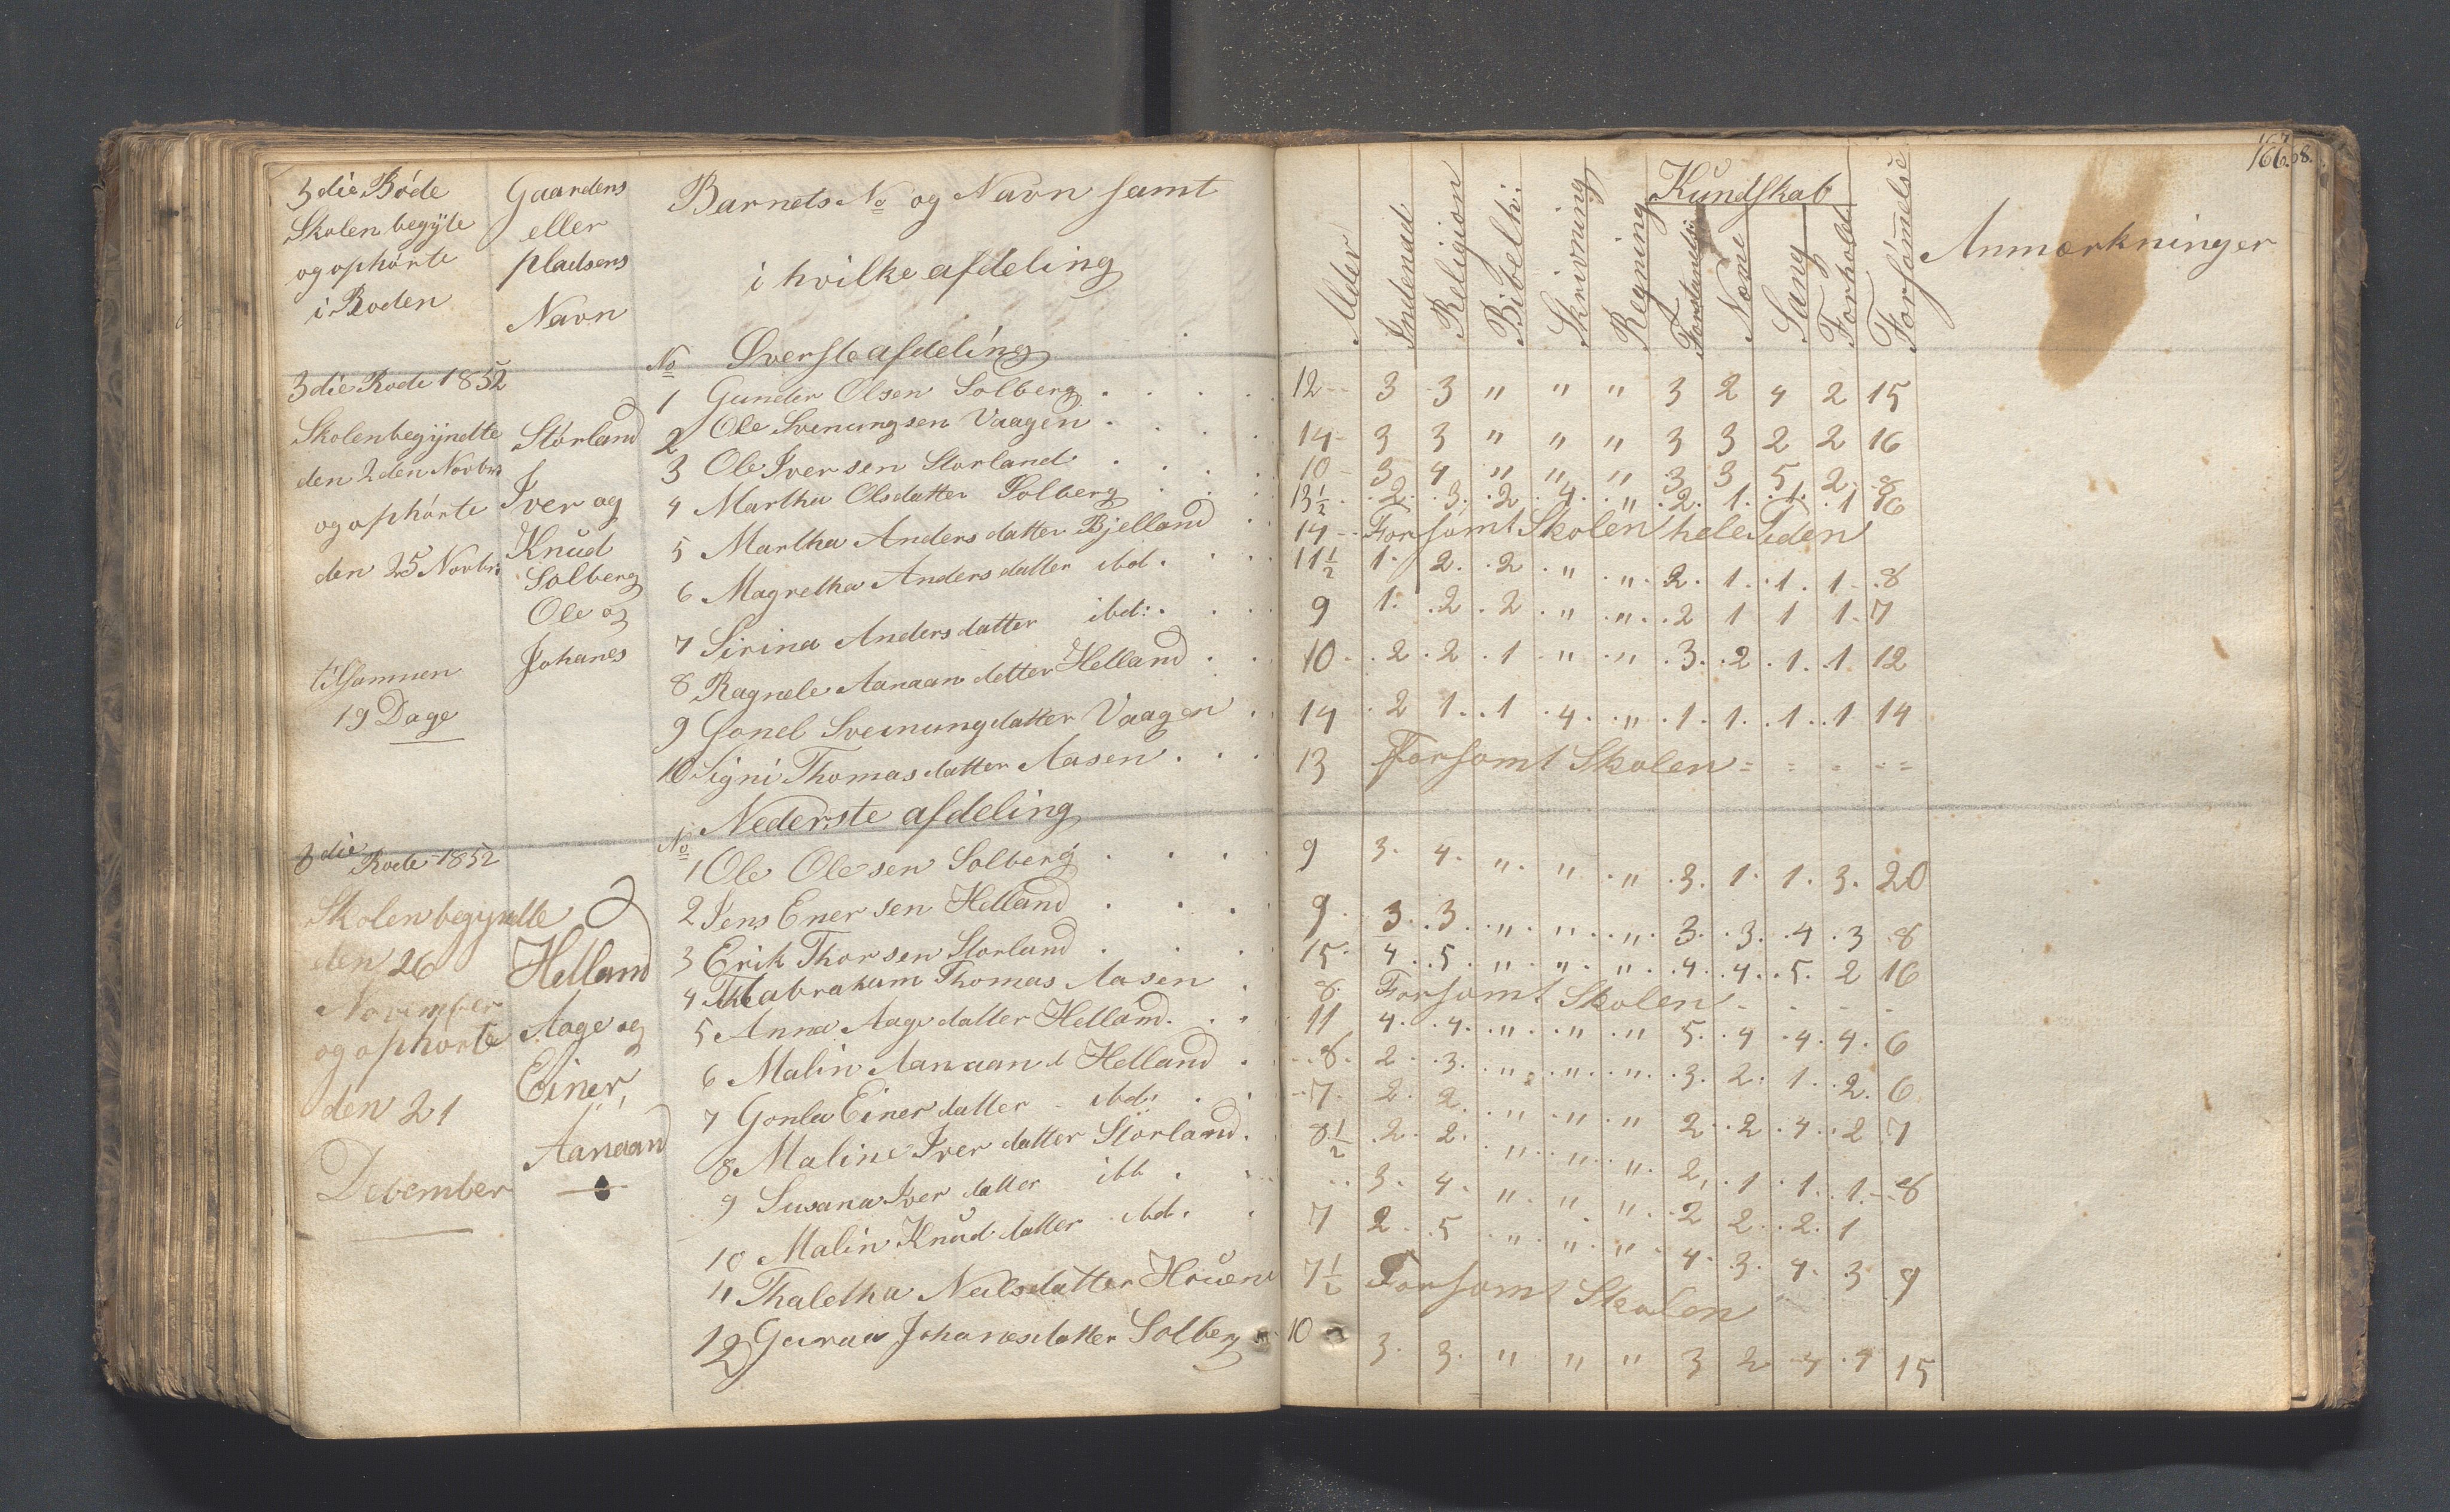 3die Rode
Skolen begÿte
og ophørte
i Roden
Gaardens
eller
Pladsens
Navn
Barnets No og Navn samt
i hvilke afdeling
Alder
Indenad
Religion
Bibelh:
Skrivning
Regning
Kundskab
Forstandh:
Næme
Sang
Forhold
Forsømelse
Anmærkninger
3die Rode 1852
Skolen begÿndte
den 2den Novbr
og ophørte
den 25 Novbr:
tilsammen
19 Dage
Størland
Iver og
Knud
Solberg
Ole og
Johanes
No Øverste afdeling
1 Gunder Olsen Solberg 12 3 3 " " " 3 2 4 2 15
2 Ole Sveinungsen Vaagen 14 3 3 " " " 3 3 2 2 16
3 Ole Iversen Storland 10 3 4 " " " 3 3 5 2 8
4 Martha Olsdatter Solberg 13½ 2 3 2 4 " 2 1 1 1 16
5 Martha Andersdatter Bjelland 14 Forsømt Skolen hele Tiden
6 Magretha Andersdatter ibd. 11½ 1 2 2 " " 2 1 1 1 8
7 Sirina Andersdatter ibd: 9 1 2 2 " " 2 1 1 1 7
8 Ragnele Aanaan detter Helland 10 2 2 1 " " 3 2 1 1 12
9 Gonel Sveinungdatter Vaagen 14 2 1 1 4 " 1 1 1 1 14
10 Signi Thomasdatter Aasen 13 Forsømt Skolen
Nederste afdeling
3die Rode 1852
Skolen begyndte
den 26
November
og ophørte
den 21
December
Helland
Aage og
Einer,
Aanaan
No
1 Ole Olesen Solberg 9 3 4 " " " 3 1 1 3 20
2 Jens Enersen Helland 9 3 3 " " " 3 3 4 3 8
3 Erik Thorsen Storland 15 4 5 " " " 4 4 5 2 16
4 abraham Thomas Aasen 8 Forsømt Skolen
5 Anna Aagedatter Helland 11 4 4 " " " 5 4 4 4 6
6 Malin Aanaan d Helland 8 2 3 " " " 3 2 1 2 6
7 Gonla Einerdatter ibd: 7 2 2 " " " 2 2 4 2 7
8 Maline Iverdatter Størland 8½ 2 2 " " " 2 1 1 1 8
9 Susana Iver datter ibb 3 4 " " " 2 2 2 1
10 Malin Knud datter ibd. 7 2 5 " " " 4 3 4 3 9
11 Thaletha Neilsdatter 7½ Forsømt Skolen
12 Guraa Johanesdatter Solberg 10 3 3 " " " 3 2 4 4 15